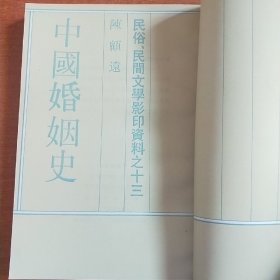 民俗、民間文學影印資料之十三
陳顧遠
中國婚姻史